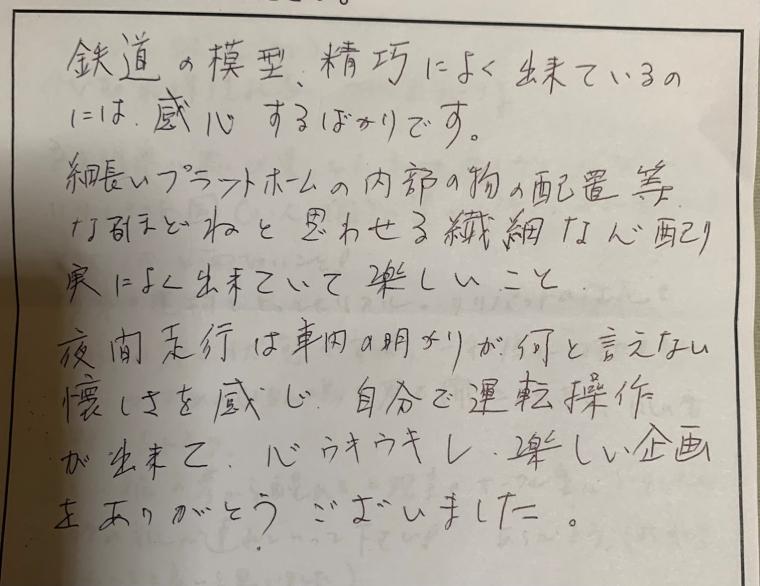 鉄道の模型、精巧によく出来ているの
には、感心するばかりです。
細長いプラットホームの内部の物の配置等
なるほどねと思わせる繊細な心配り
実によく出来ていて楽しいこと
夜間走行は車内の明かりが何と言えない
懐しさを感じ、自分で運転操作
が出来て、心ウキウキし、楽しい企画
をありがとうございました。